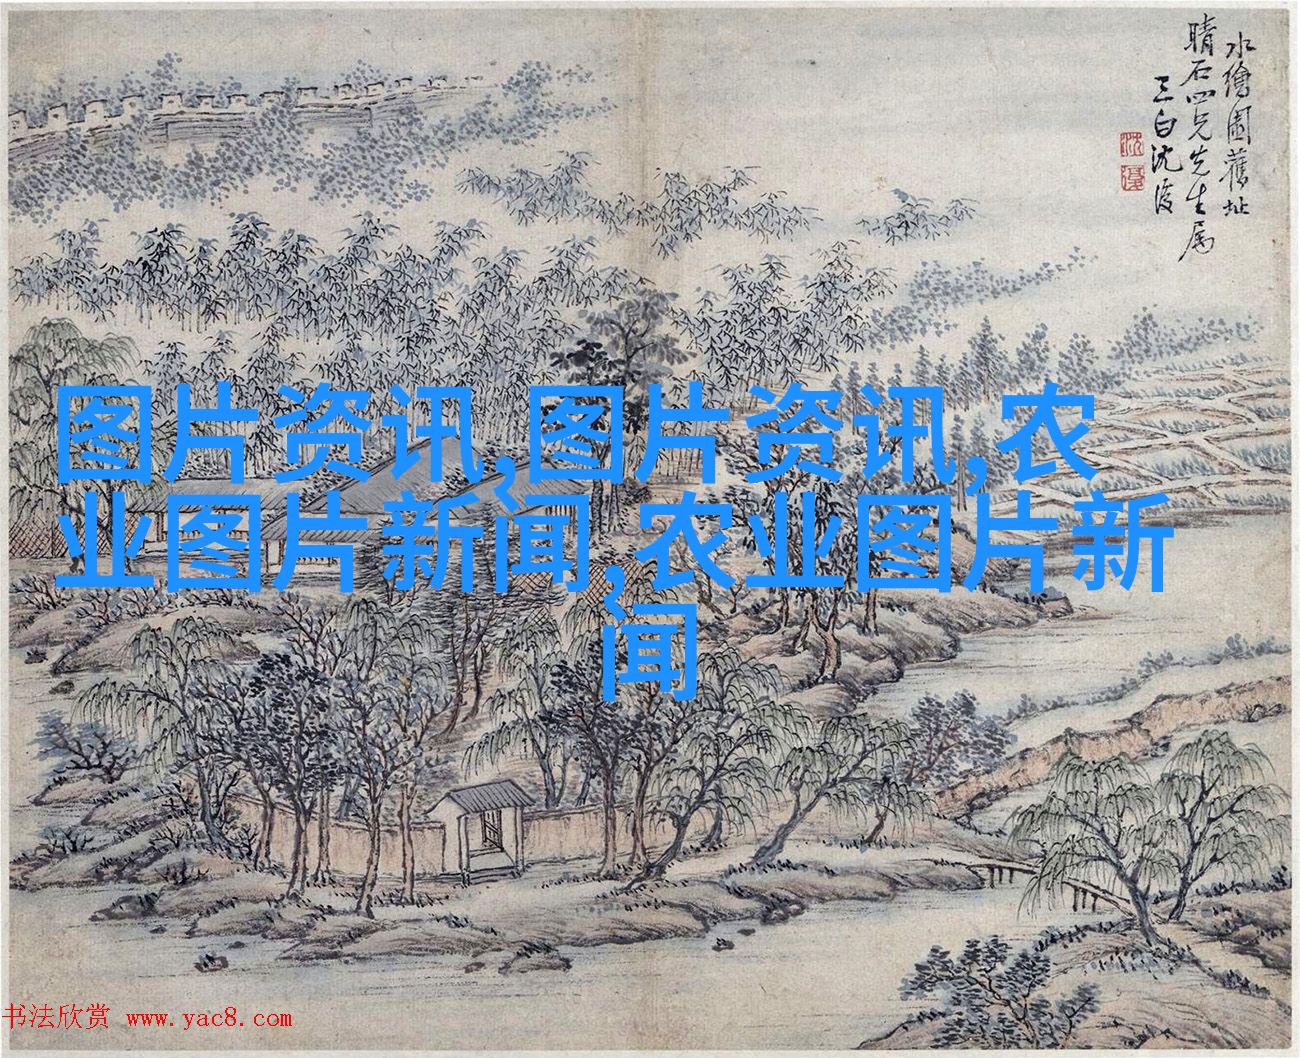 水繪園舊址
晴石四兄先生属
三白沈復
沈
復
图片资讯,图片资讯,农
业图片新闻,农业图片新
闻
书法欣赏 www.yac8.com